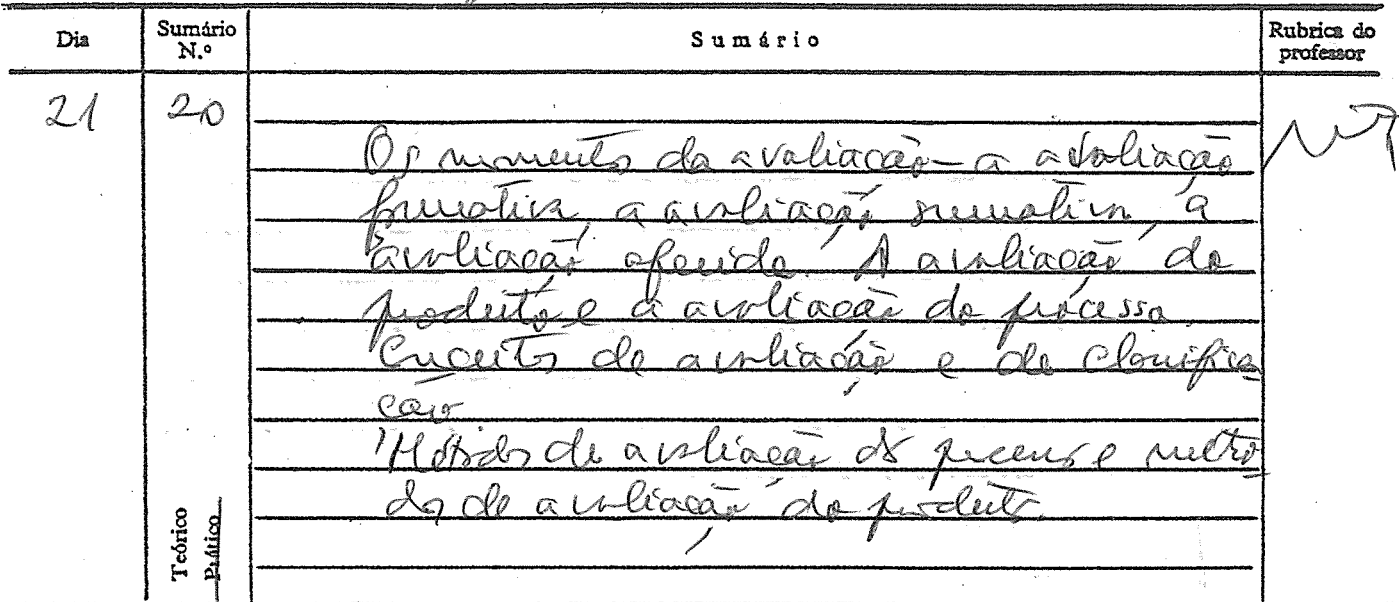 Dia
Sumário N.º
Sumário
Rubrica do professor
21
20
Os momentos da avaliação - a avaliação
formativa, a avaliação sumativa, a
avaliação aferida. A avaliação do
produto e a avaliação do processo.
Conceito de avaliação e de classifica-
ção
Métodos de avaliação do processo e méto-
dos de avaliação do produto.
Teórico
Prático